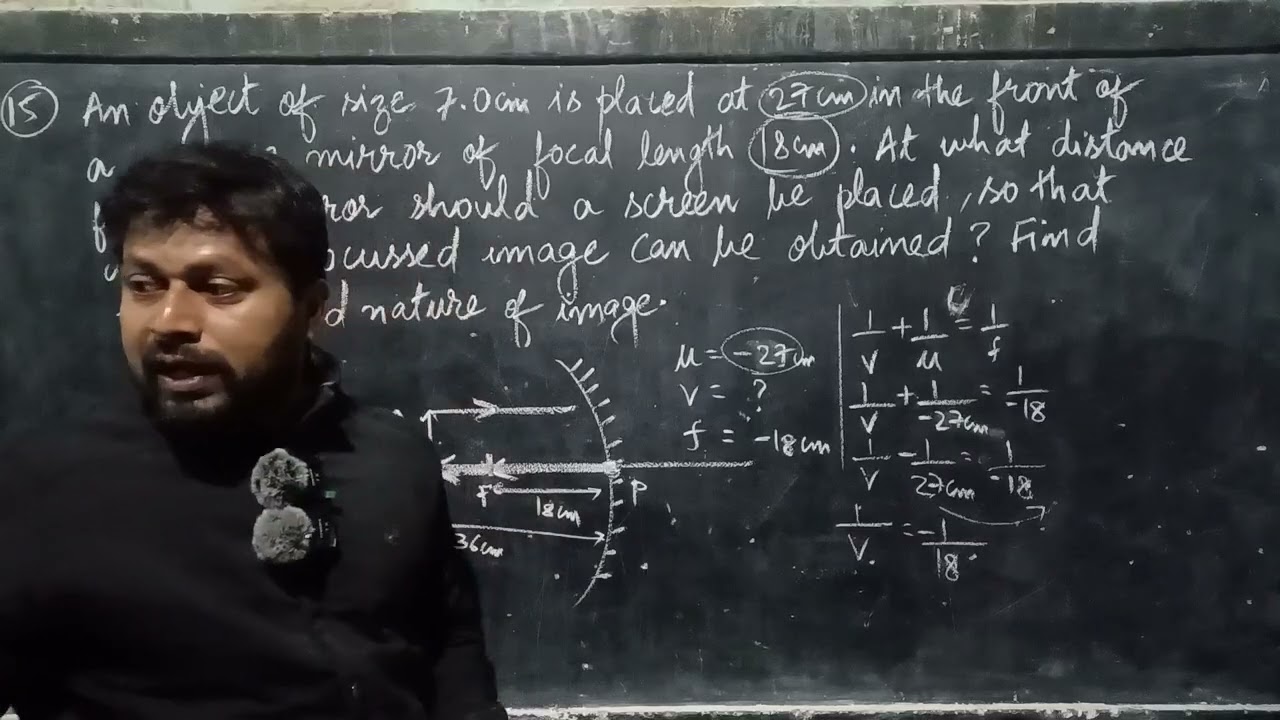 15 An object of size 7.0cm is placed at 27cm in the front of
a mirror of focal length 18cm. At what distance
should a screen be placed, so that
image can be obtained? Find
nature of image.
u = -27cm
v = ?
f = -18cm
1/v + 1/u = 1/f
1/v + 1/-27cm = 1/-18
1/v - 1/27cm = 1/-18
1/v = -1/18
F
P
18cm
36cm